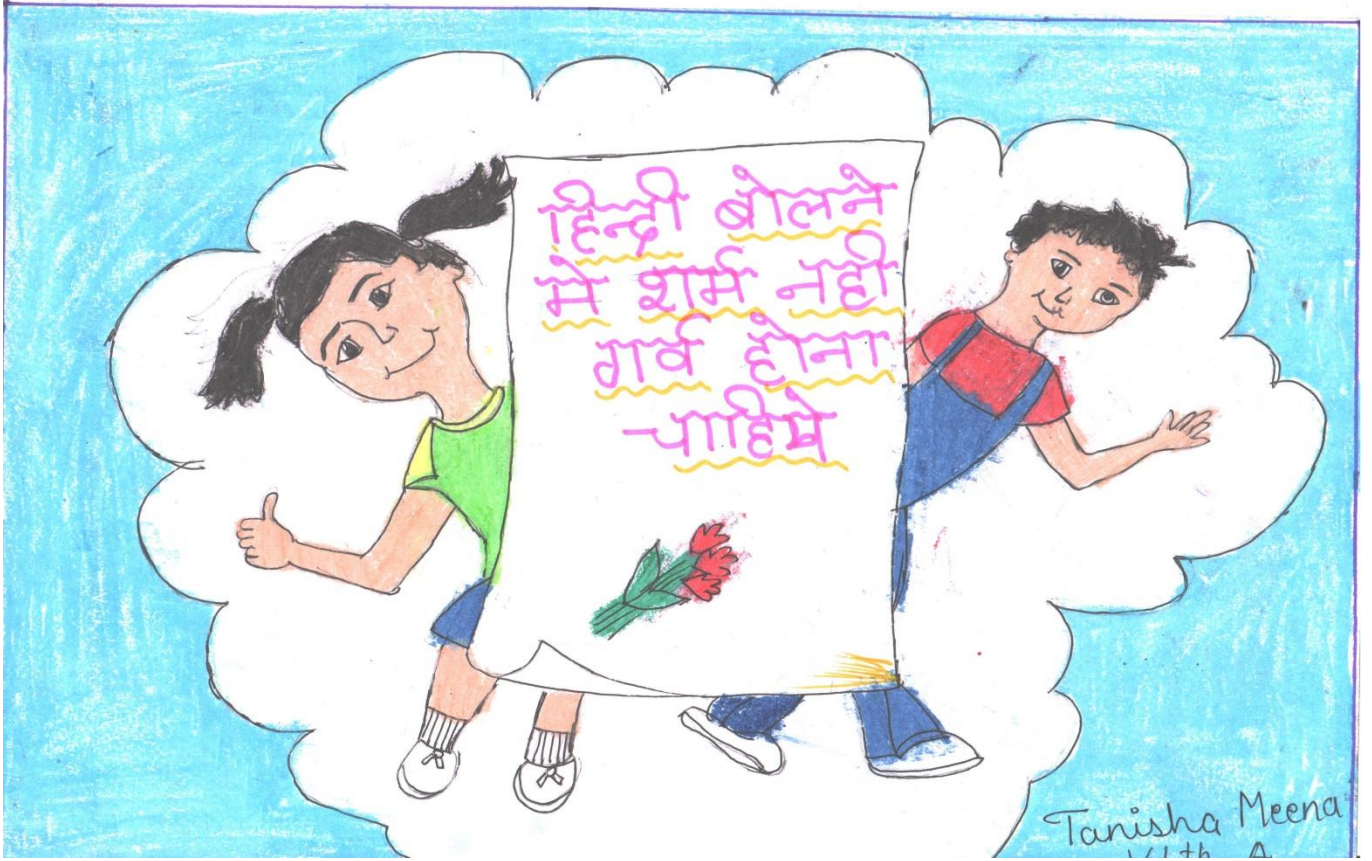 हिन्दी बोलने
मे शर्म नही
गर्व होना
चाहिये
Tanisha Meena
VIth A